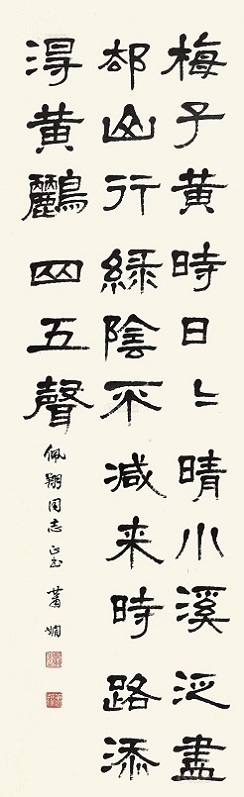 梅子黄時日〻晴小溪泛盡
却山行緑陰不減来時路添
得黄鸝四五聲
佩翔同志正書 蕭嫻